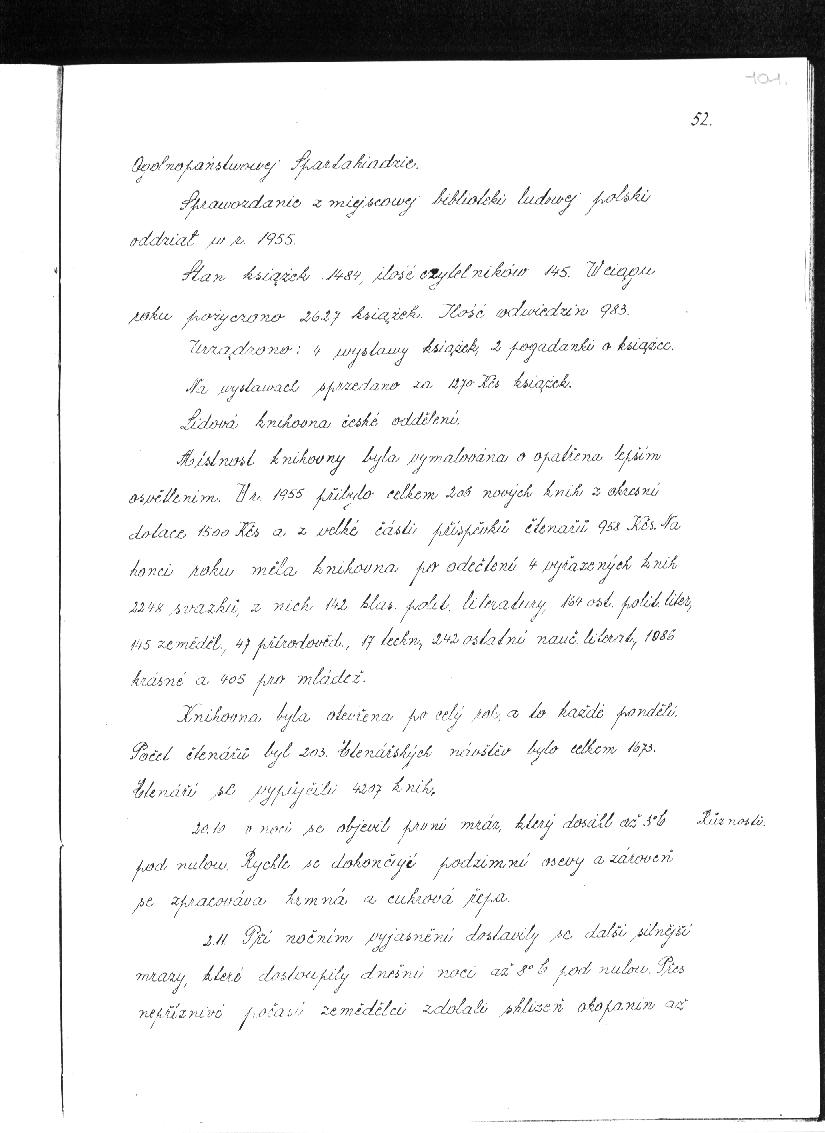 101.
52.
Ogólnopaństwowej Spartakiadzie.
Sprawozdanie z miejscowej biblioteki ludowej polski
oddział w r. 1955.
Stan książek 1484, ilość czytelników 145. W ciągu
roku pożyczono 2627 książek. Ilość odwiedzin 983.
Urządzono: 4 wystawy książek, 2 pogadanki o książce.
Na wystawach sprzedano za 1270 Kčs książek.
Lidová knihovna české oddělení.
Místnost knihovny byla vymalována o opatřena lepším
osvětlením. V r. 1955 přibylo celkem 205 nových knih z okresní
dotace 1500 Kčs a z velké části příspěvků čtenářů 958 Kčs. Na
konci roku měla knihovna po odečtení 4 vyřazených knih
2248 svazků, z nich 142 klas. polit. literatury, 164 ost. polit. liter,
145 zeměděl., 47 přírodověd., 17 techn, 242 ostatní nauč. literat, 1086
krásné a 405 pro mládež.
Knihovna byla otevřena po celý rok, a to každé pondělí.
Počet čtenářů byl 203. Čtenářských návštěv bylo celkem 1673.
Čtenáři si vypůjčili 4217 knih.
20.10 v noci se objevil první mráz, který dosáhl až 3° C Různosti.
pod nulou. Rychle se dokončují podzimní osevy a zároveň
se zpracovává krmná a cukrová řepa.
2.11. Při nočním vyjasnění dostavily se další silnější
mrazy, které dostoupily dnešní noci až 8° C pod nulou. Přes
nepříznivé počasí zemědělci zdolali sklizeň okopanin až